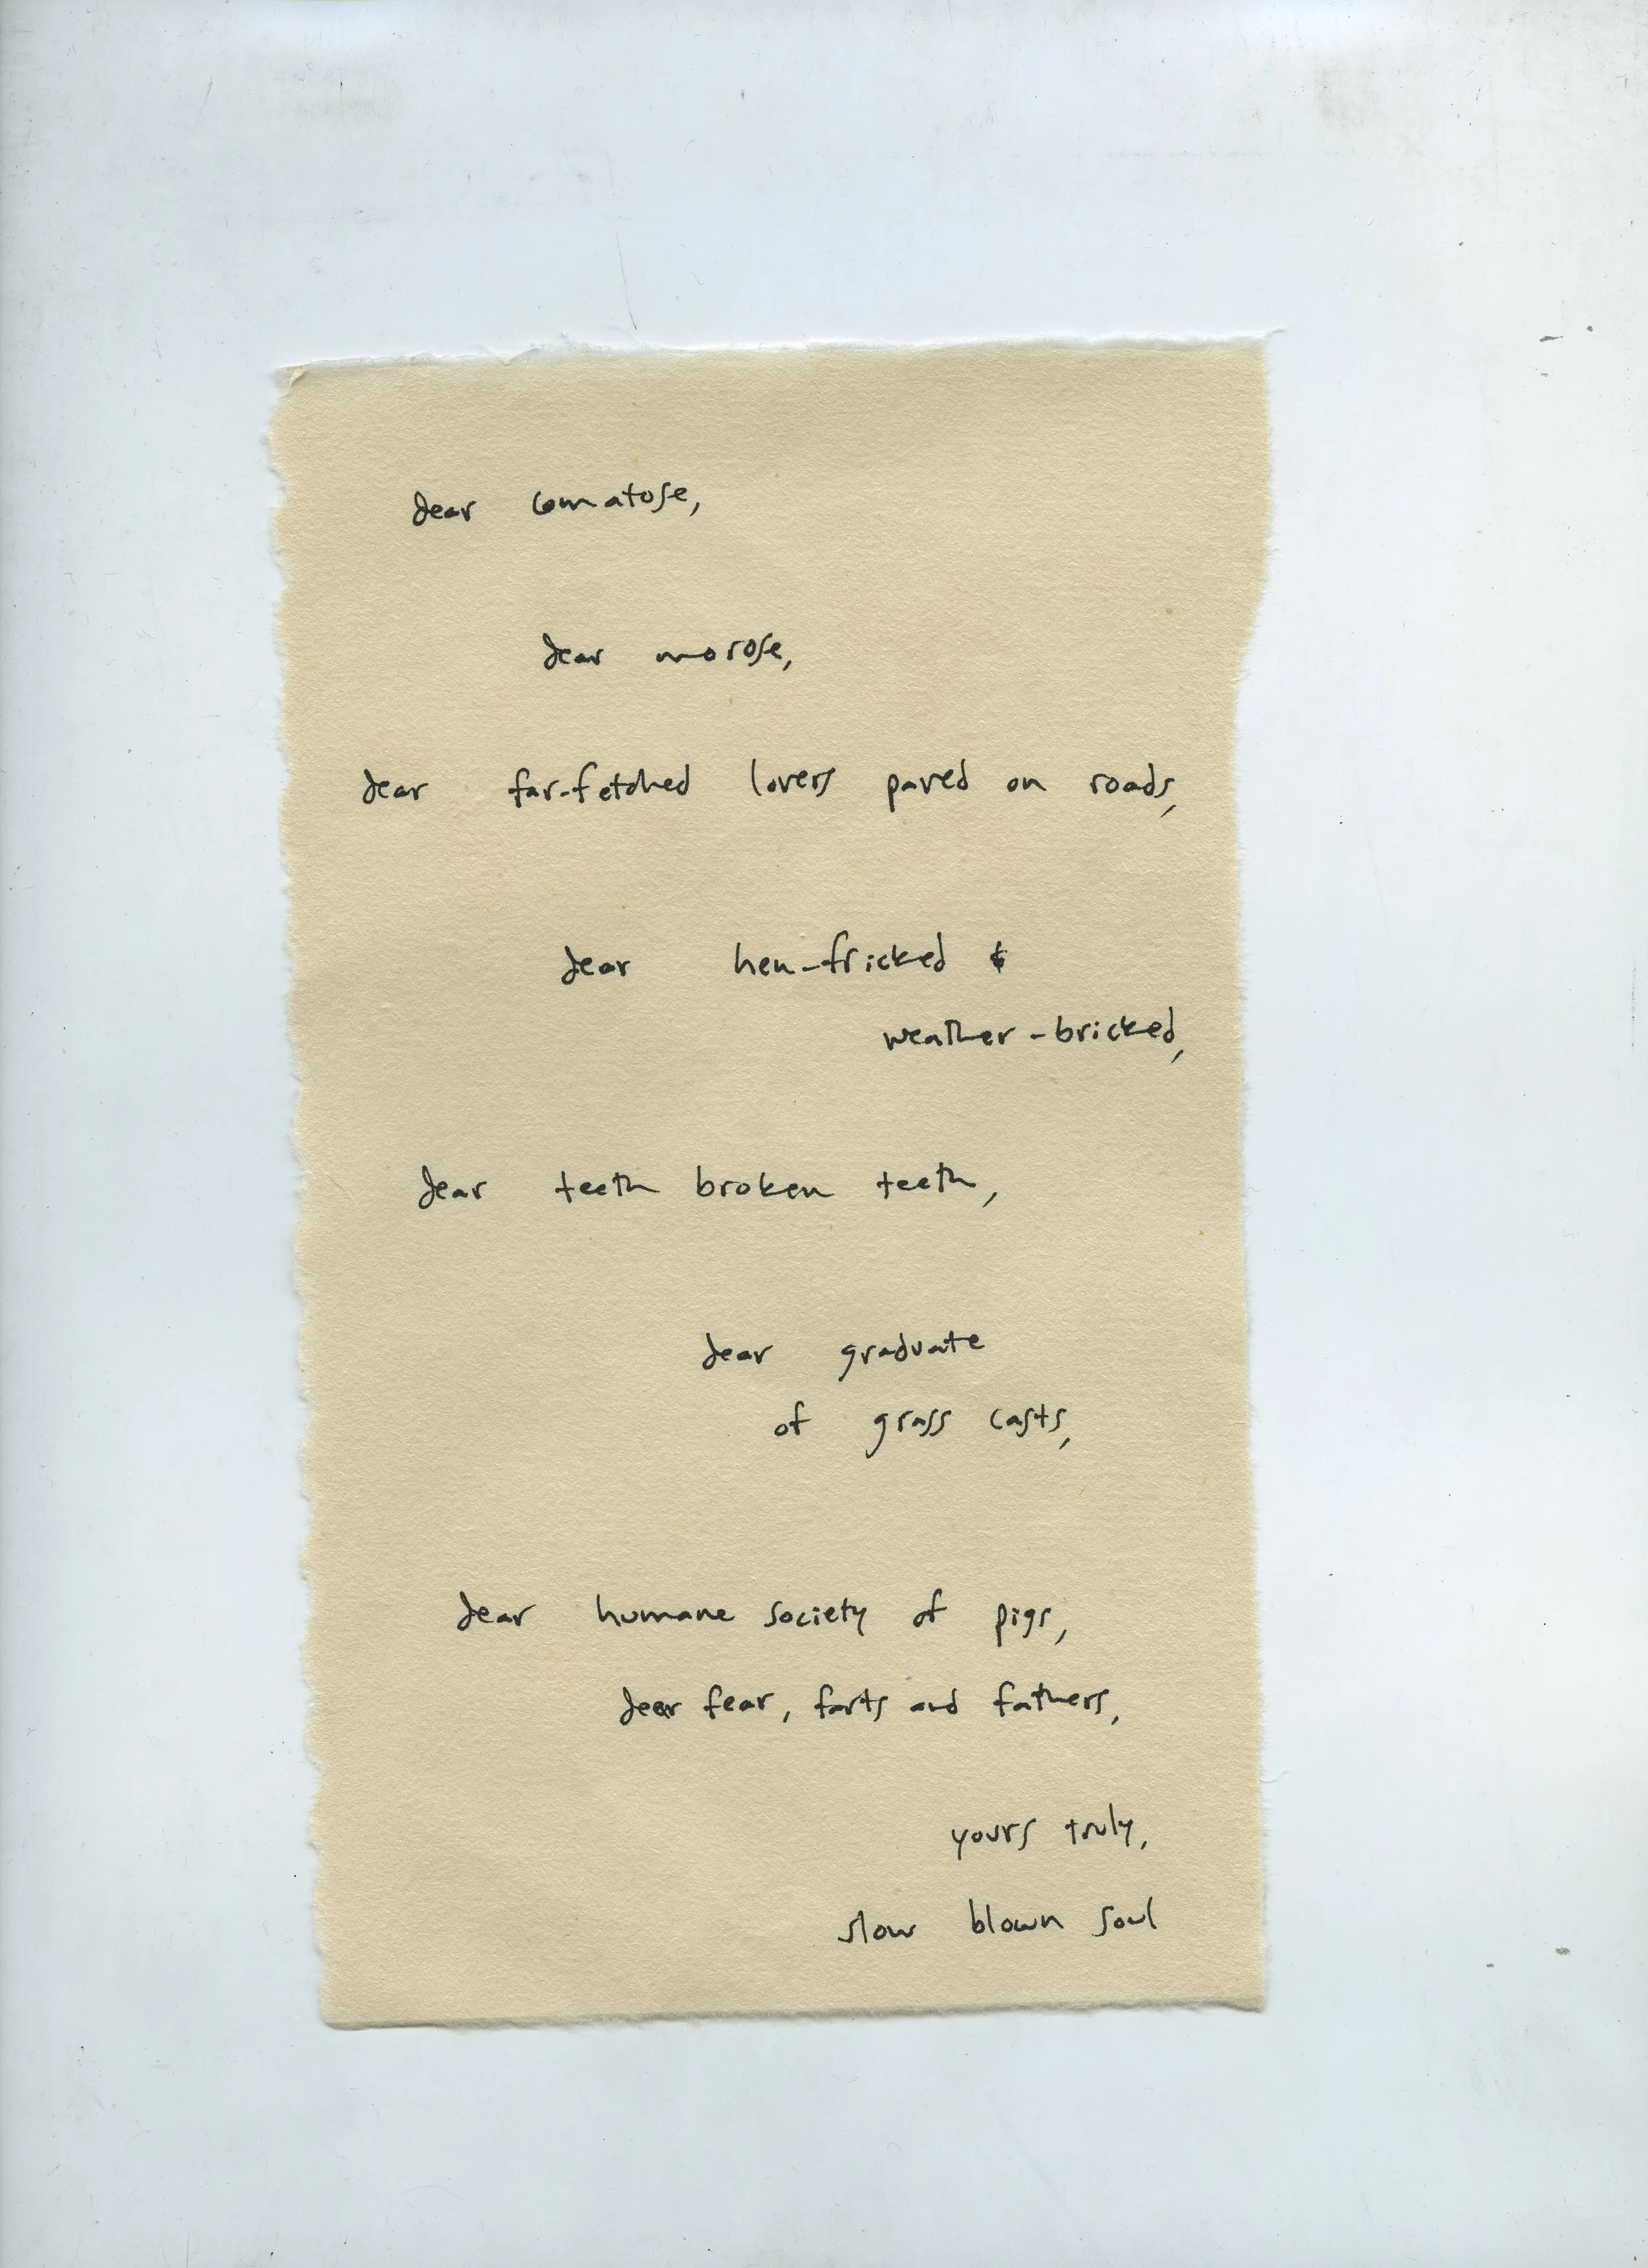 dear comatose,
dear morose,
dear far-fetched lovers paved on roads,
dear hen-fricked &
weather-bricked,
dear teeth broken teeth,
dear graduate
of grass casts,
dear humane society of pigs,
dear fear, farts and fathers,
yours truly,
slow blown soul